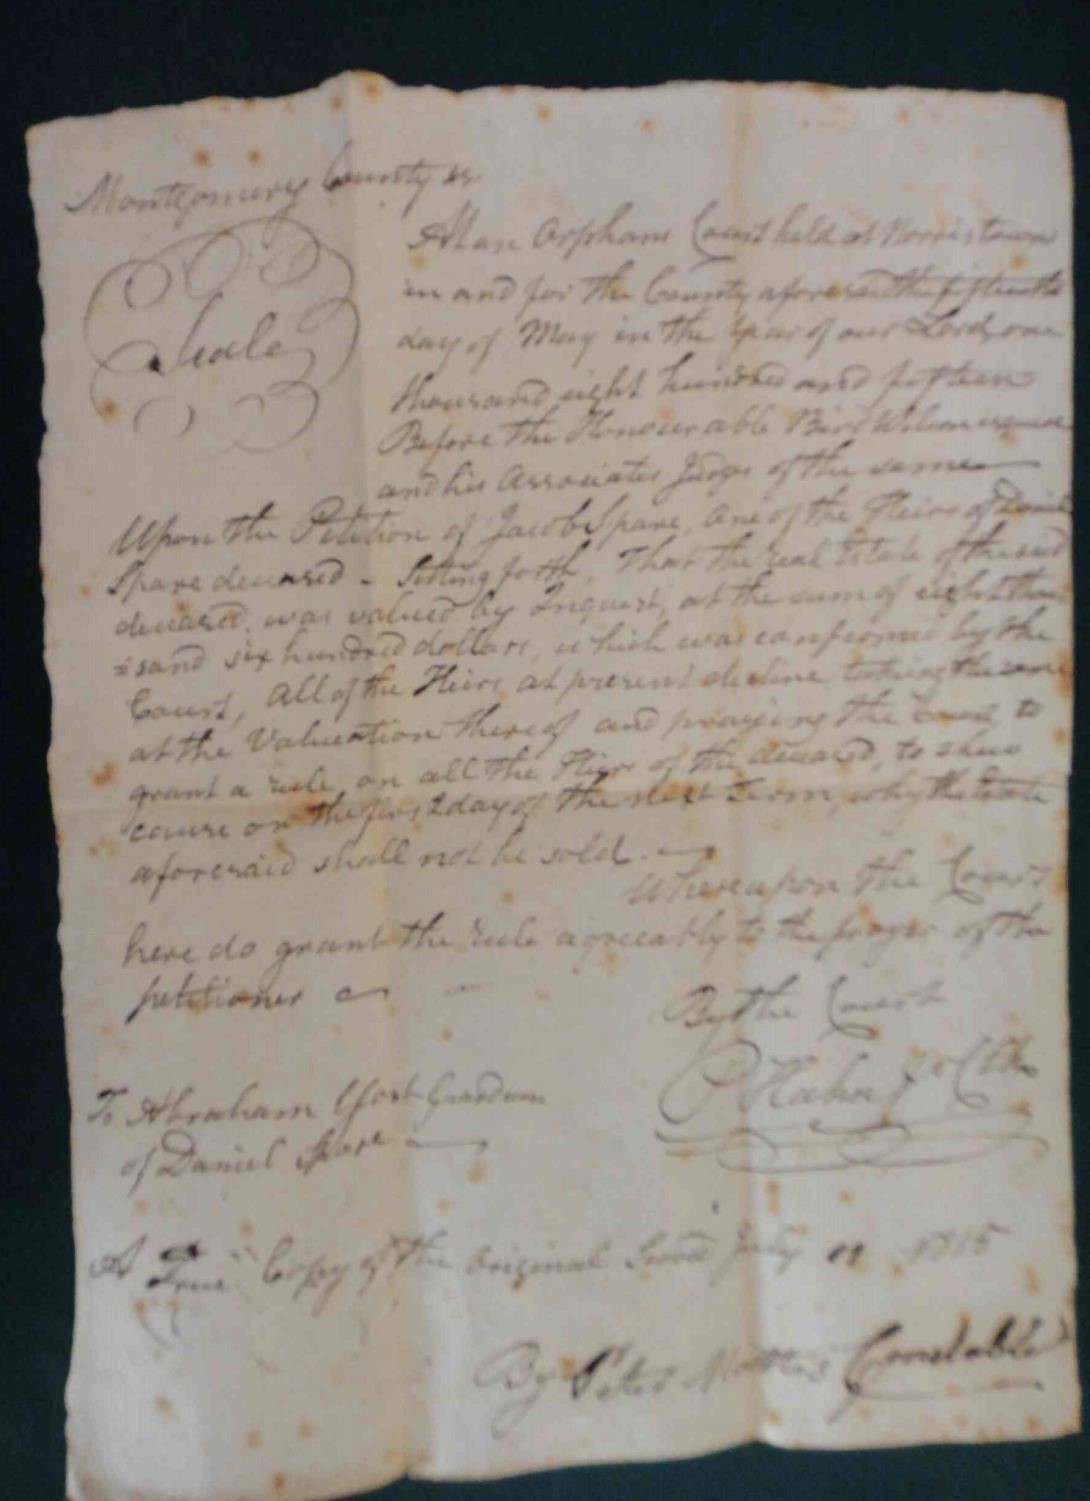 Montgomery County ss.
Seale
At an Orphans Court held at Norristown
in and for the County aforesaid the fifteenth
day of May in the Year of our Lord one
thousand eight hundred and fifteen
Before the Honourable Bird Wilson esquire
and his Associates Judges of the same
Upon the Petition of Jacob Spare, one of the Heirs of Daniel
Spare deceased - Setting forth, That the real Estate of the said
deceased, was valued by Inquest, at the sum of eight thou
=sand six hundred dollars, which was confirmed by the
Court, all of the Heirs at present decline taking the same
at the Valuation thereof and praying the Court to
grant a rule on all the Heirs of the deceased, to shew
cause on the first day of the next Term, why the Estate
aforesaid shall not be sold.
Whereupon the Court
here do grant the rule agreeably to the prayer of the
petitioner
By the Court
P Hahn Jr Clk
To Abraham Yost Guardian
of Daniel Spare
A True Copy of the original Served July 1815
By Peter Constable